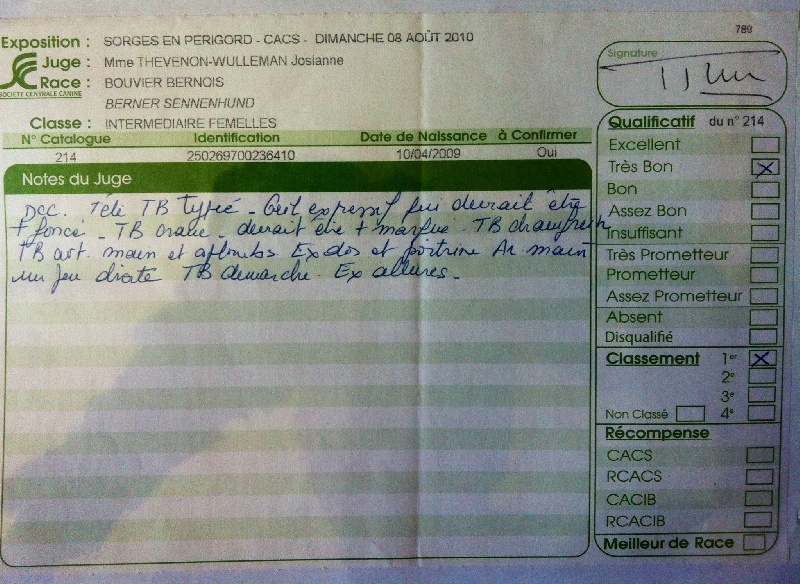 780
Exposition : SORGES EN PERIGORD - CACS - DIMANCHE 08 AOÛT 2010
Juge : Mme THEVENON-WULLEMAN Josianne
Race : BOUVIER BERNOIS
SOCIETE CENTRALE CANINE
BERNER SENNENHUND
Classe : INTERMEDIAIRE FEMELLES
N° Catalogue Identification Date de Naissance à Confirmer
214 250269700236410 10/04/2009 Oui
Notes du Juge
Dcc. Tête TB typée - Oeil expressif qui devrait être
+ foncé - TB crane - devrait être + marqué - TB chanfrein
TB art. main et aplombs Ex dos et poitrine Ar main
un peu droite TB démarche. Ex allures -
Signature
Qualificatif du n° 214
Excellent
Très Bon X
Bon
Assez Bon
Insuffisant
Très Prometteur
Prometteur
Assez Prometteur
Absent
Disqualifié
Classement 1er X
2e
3e
Non Classé 4e
Récompense
CACS
RCACS
CACIB
RCACIB
Meilleur de Race